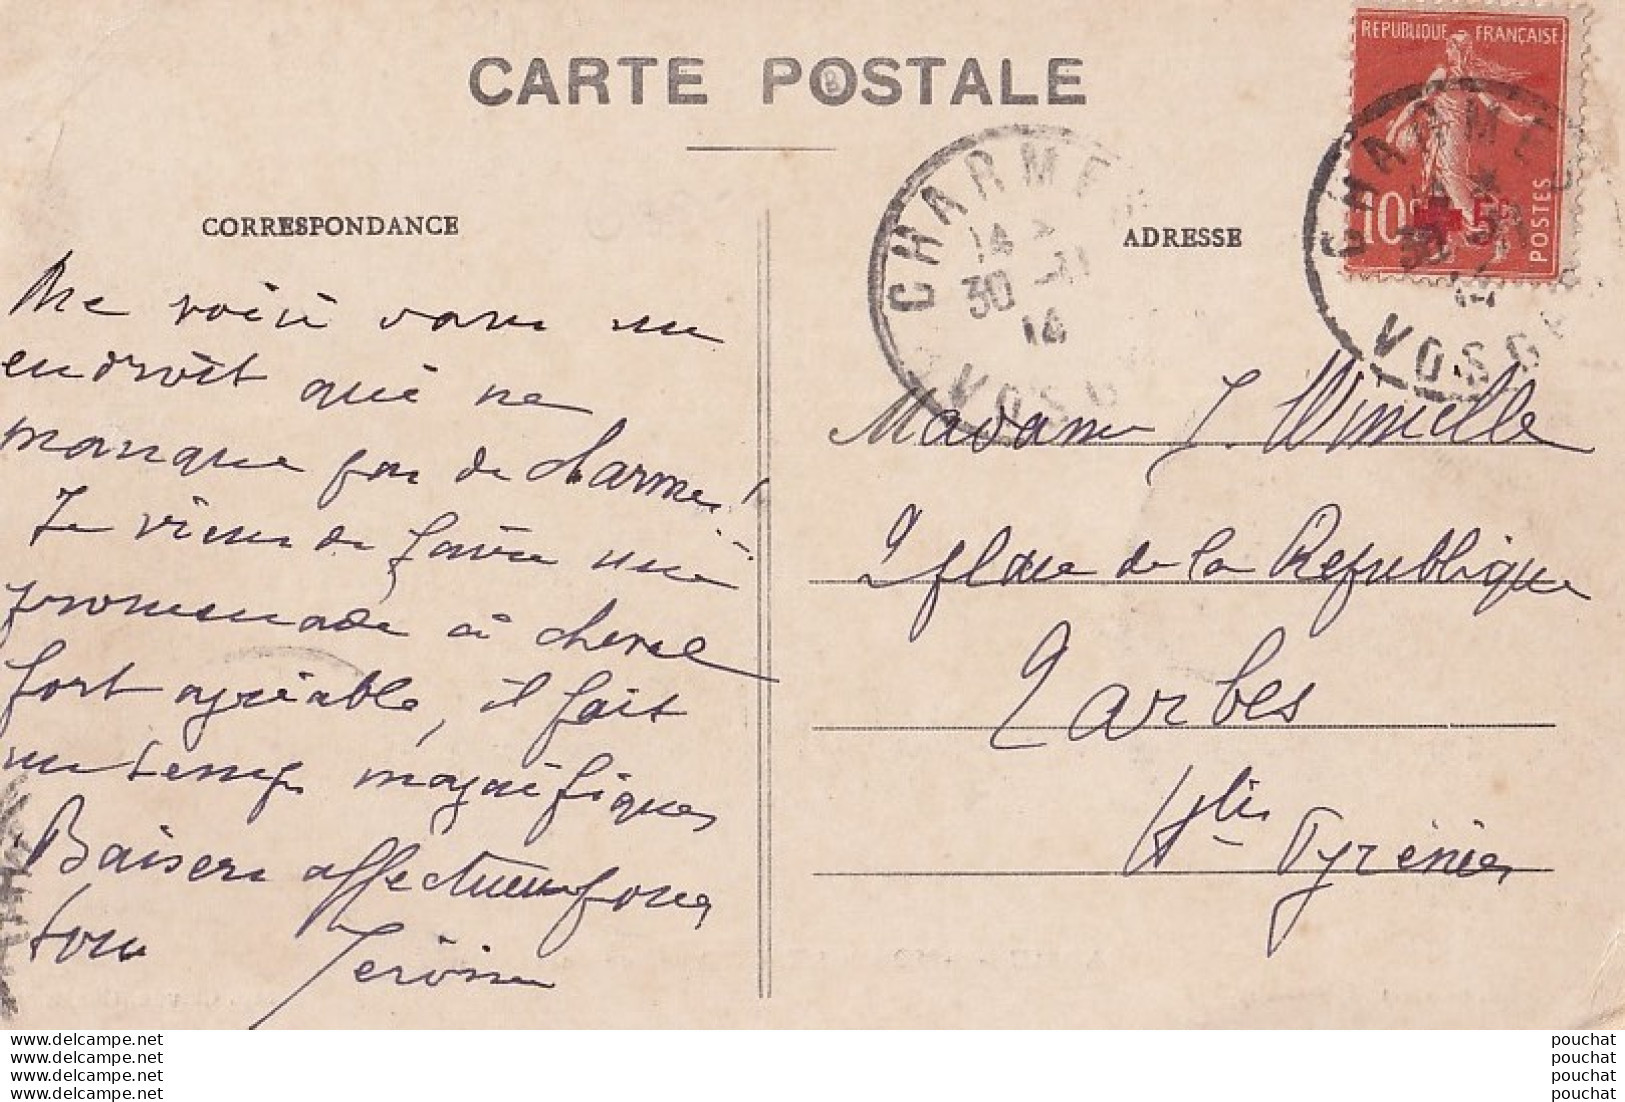 CARTE POSTALE
CORRESPONDANCE
ADRESSE
REPUBLIQUE FRANÇAISE
10 5
POSTES
CHARMES
14
30 -11
14
VOSGES
CHARMES
14
30 -11
14
VOSGES
Me voici dans un
endroit qui ne
manque pas de charme!
Je viens de faire une
promenade à cheval
fort agréable, il fait
un temps magnifique
Baisers affectueux pour
tous Jérôme
Madame J. Wimille
2 place de la République
Tarbes
Htes Pyrénées
www.delcampe.net
www.delcampe.net
www.delcampe.net
www.delcampe.net
pouchat
pouchat
pouchat
pouchat